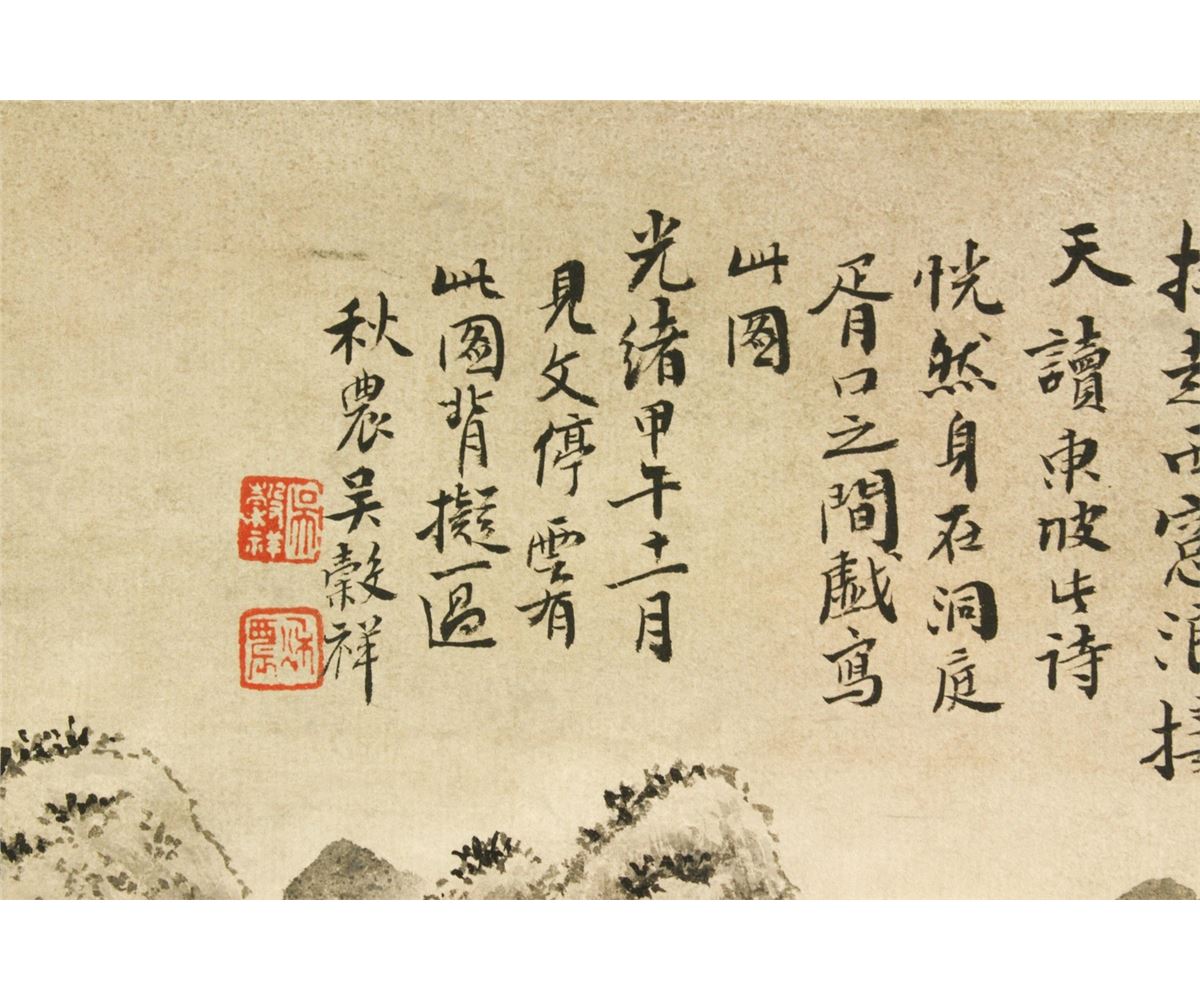 起西窗浪接
天讀東坡此诗
恍然身在洞庭
胥口之間戲寫
此圖
光緒甲午十一月
見文停雲有
此圖背擬一過
秋農吴穀祥
吳穀祥
秋農